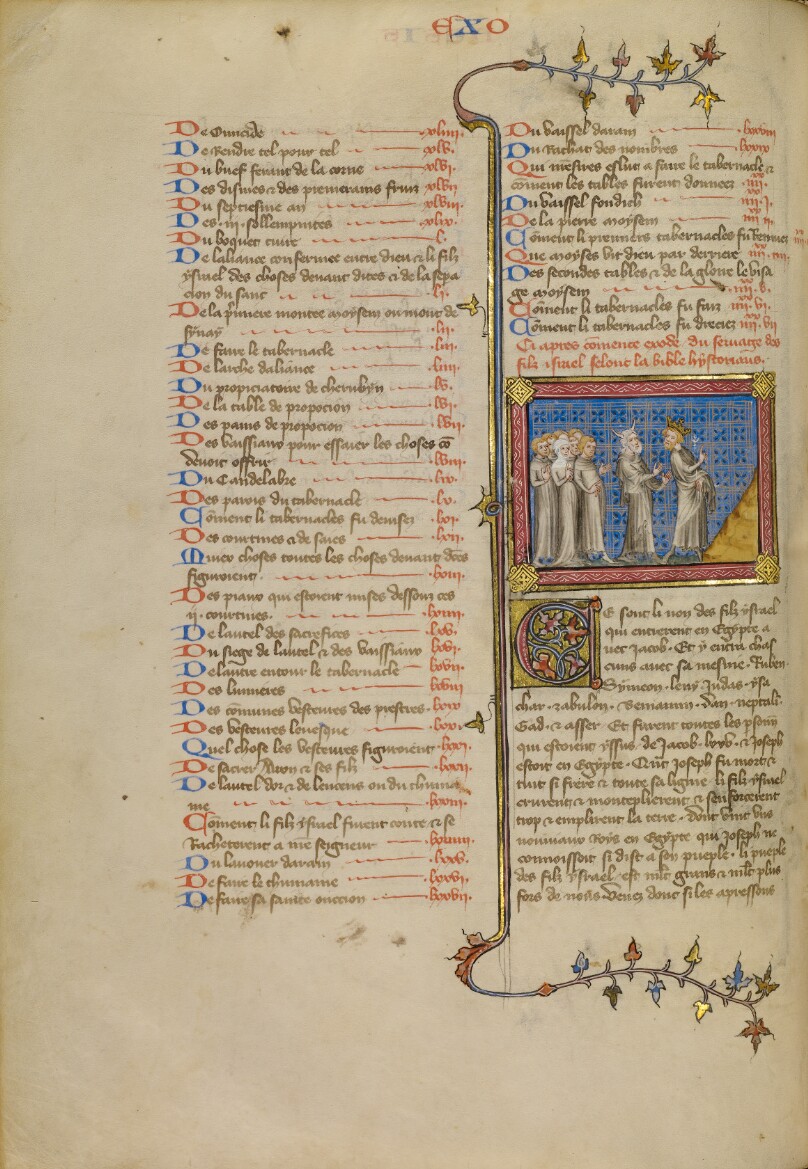 EXO
De omicide xliiii.
De rendre tel pour tel xlv.
Du buef ferant de la corne xlvi.
Des dismes & des premerains fruiz xlvii
Du septiesme an xlviii.
Des .iii. sollempnites xlix.
Du boquet cuire l.
De laliance confermee entre dieu & li filz
ysrael des choses deuant dites & de la sepa
cion du sanc li.
De la premiere montee moysem ou mont de
synay lii.
De faire le tabernacle liii.
De larche daliance liiii.
Du propiciatoire de cherubyn lv.
De la table de propocion lvi.
Des pains de propocion lvii.
Des vaissiaux pour essaier les choses co
deuoit offrir lviii.
Du Candelabre lix.
Des parois du tabernacle lx.
Coment li tabernacles fu deuisez lxi.
Des courtines & de saies lxii.
Quex choses toutes les choses deuant dctes
figuroient. lxiii.
Des piaux qui estoient mises dessouz ces
.ii. courtines. lxiiii.
De lautel des sacrefices lxv.
Du siege de lautel & des vaissiaux lxvi.
De lautre entour le tabernacle lxvii.
Des lumieres lxviii
Des comunes vesteures des prestres. lxix
Des vesteures leuesque lxx.
Quel chose les vesteures figuroient lxxi.
De sacrer Aaron & ses filz lxxii.
De lautel dor & de lencens ou du chimia
me lxxiii.
Coment li filz ysrael furent conte & se
Racheterent a nre seigneur lxxiiii.
Du lauouer darain lxxv.
De faire le chimiame lxxvi.
De faire la sainte onccion lxxvii.
Du vaissel darain lxxviii
Du Rachat des nombres lxxix
Qui mestres eslut a faire le tabernacle &
coment les tables furent donnees .iiii.
Du vaissel fondich iiii. i.
De la pierre moysem iiii. ii.
Coment li premiers tabernacles fu
Que moyses vit dieu par derriere iiii. iiii.
Des secondes tables & de la gloire le visa
ge moysem iiii. v.
Coment li tabernacles fu faiz iiii. vi.
Coment li tabernacles fu dreciez iiii. vii
Ci apres comence exode du seruage des
filz israel selonc la bible hystoriaus.
CE sont li non des filz ysrael
qui entrerent en Egypte a
uec Jacob. Et y entra chas
cuns auec sa mesnie. Ruben.
Symeon. leuy. Judas. ysa
char. zabulon. Beniamin. Dan. neptali.
Gad. & asser. Et furent toutes les psones
qui estoient yssus de Jacob. lxx. & Joseph
estoit en Egypte. Quant Joseph fu mort &
tuit si frere & toute sa ligniee li filz ysrael
crurent & monteplierent & senforcerent
trop & emplirent la terre. Dont vint vns
nouuiaux Roys en Egypte qui Joseph ne
connoissoit si dist a son pueple. li pueple
des filz ysrael est mlt grans & mlt plus
fors de nous. Venez dont si les apressons